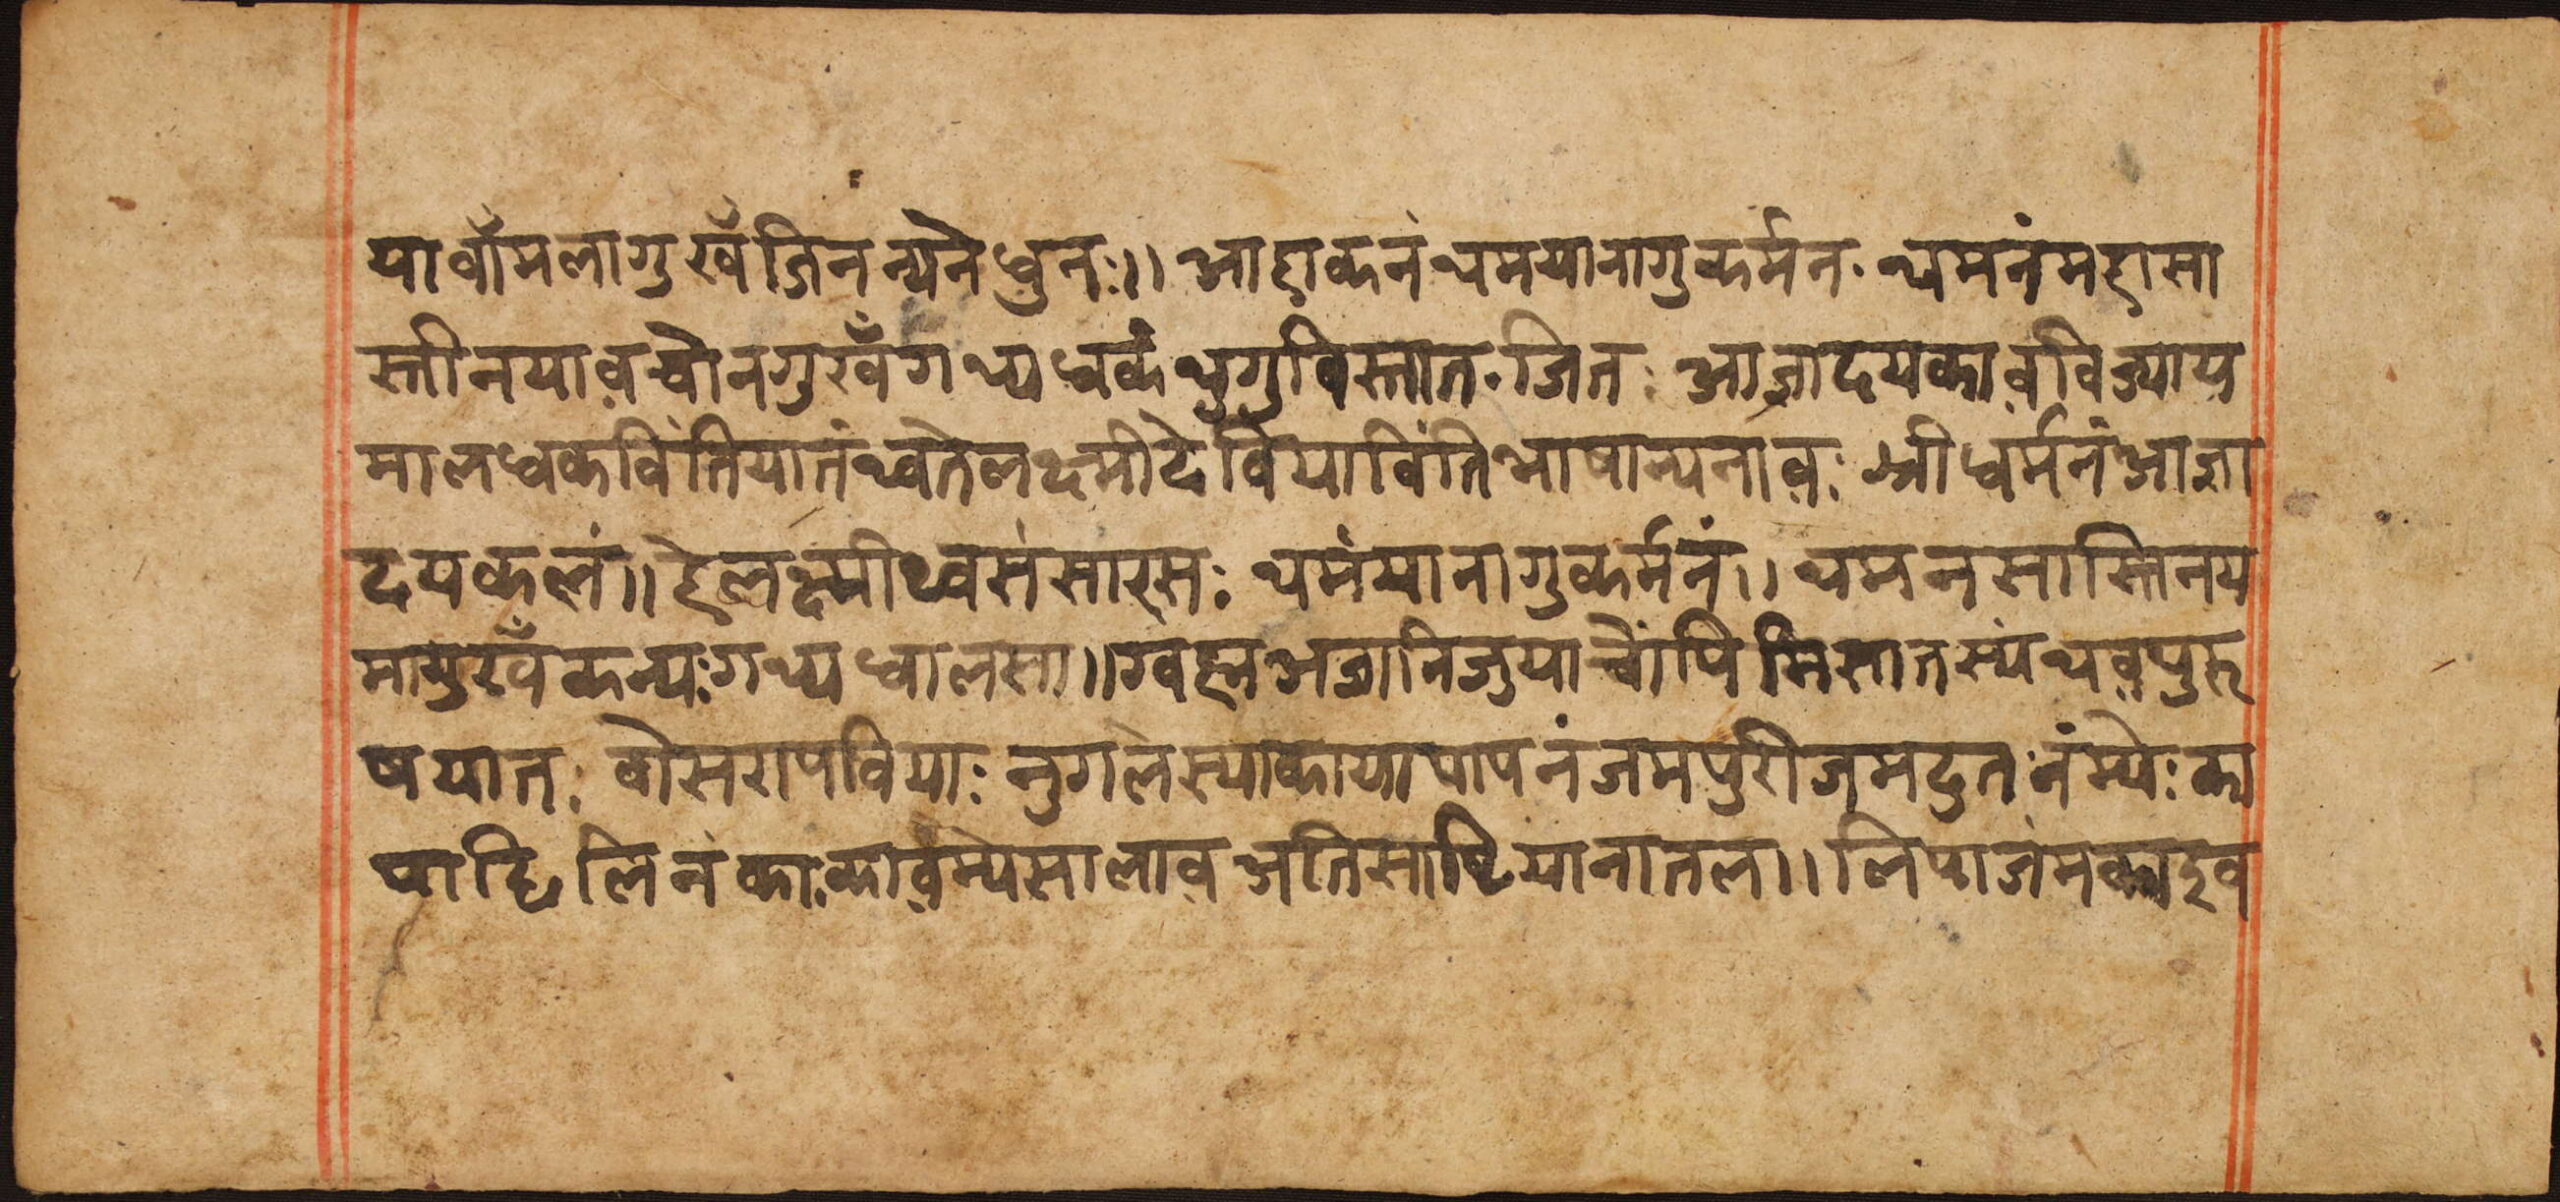 यार्वांमलागु खँ जिन न्यने धुनः॥ आहाकनं थमयानागु कर्मन. थमनं महासा
स्तीनयाव़ चोनगु खँ गथ्य धकं थुगु विस्तात. जित. आज्ञादयकाव़ विज्याय
माल धक विंतियातं थ्वते लक्ष्मी देविया विंति भाषा न्यनाव़ः श्रीधर्मनं आज्ञा
दयकलं॥ हे लक्ष्मी थ्व संसारसः थमंयानागु कर्मनं॥ थमन सास्तिनय
मागु खँ कन्यः गथ्य धालसा॥ ग्वह्म अज्ञानि जुयाचोंपि मिसातस्यं थव़ पुरू
षयातः बोसरापवियाः नुगलस्याकाया पापनं जमपुरी जमदुतःनं म्येः का
चाहिलिनं काःकाव़ म्ये सालाव़ अति सास्तियानातल॥ लिपा जंमकाइव